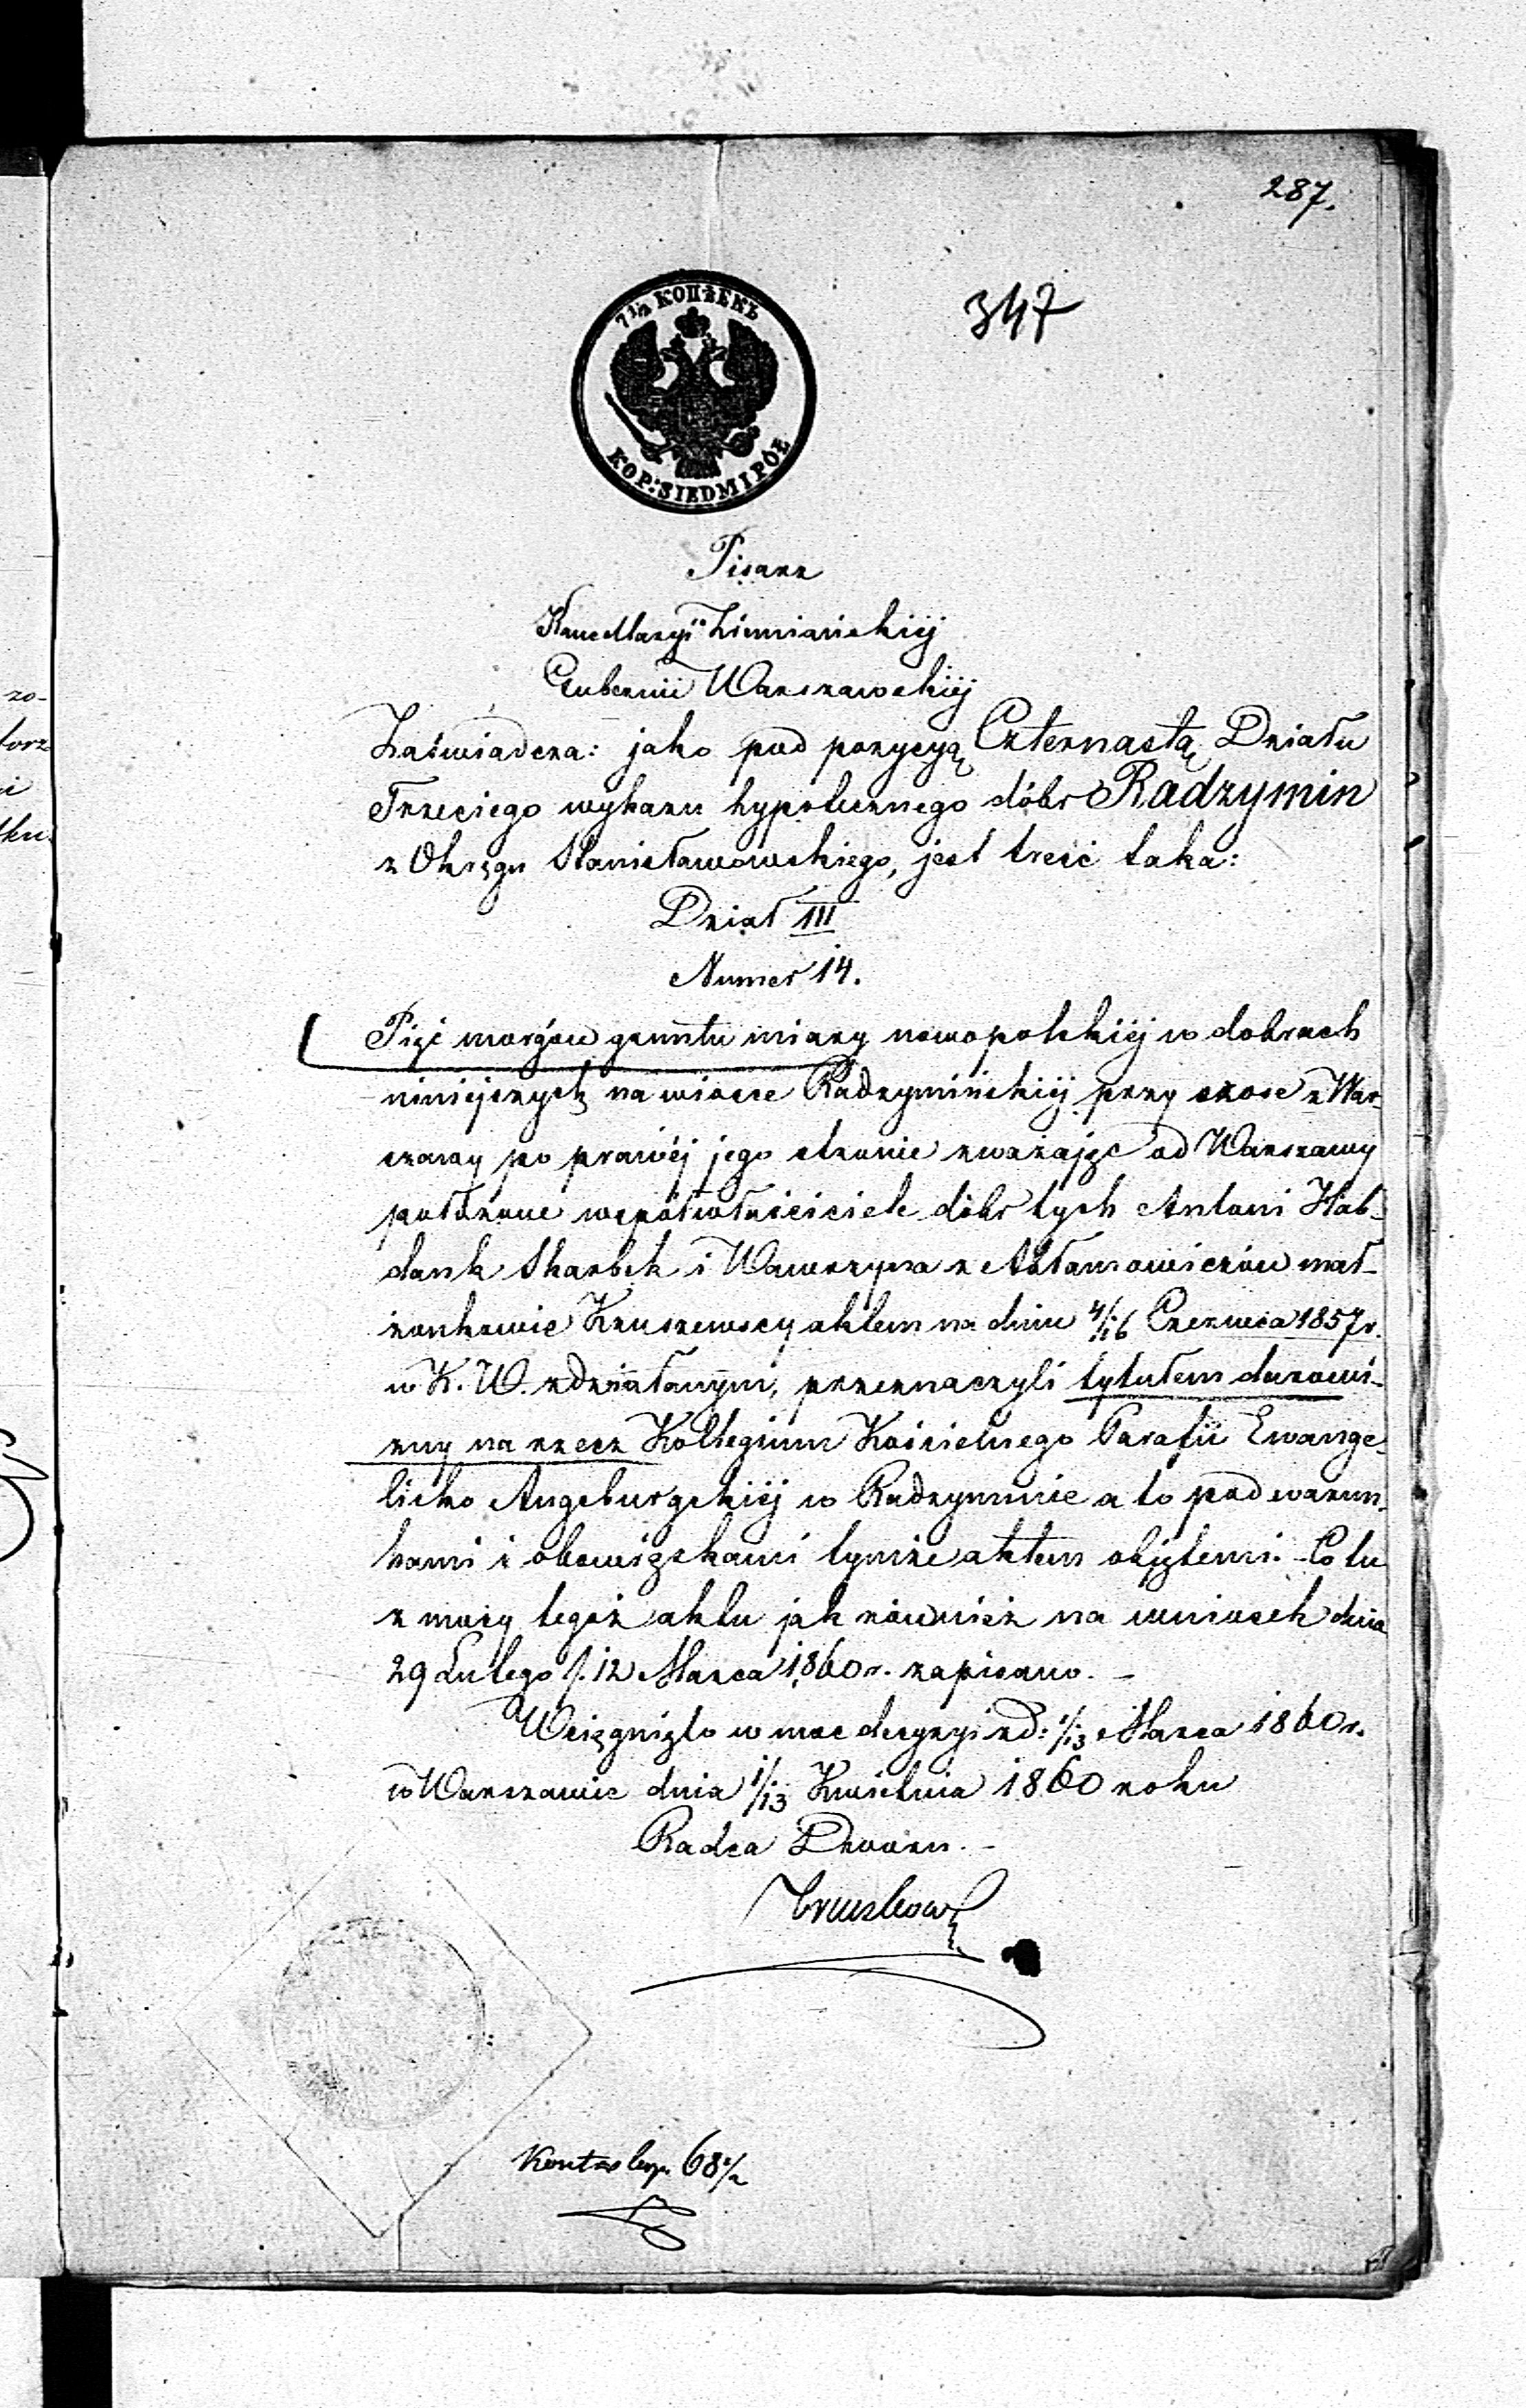 287.
347
7 1/2 КОПѢЕКЪ
KOP: SIEDM I PÓŁ
Pisarz
Kancellaryi Ziemiańskiéj
Gubernii Warszawskiéj
Zaświadcza: jako pod pozycyą Czternastą Działu
Trzeciego wykazu hypotecznego dóbr Radzymin
z Okręgu Stanisławowskiego, jest treść taka:
Dział III
Numer 14.
Pięć morgów gruntu miary nowopolskiéj w dobrach
niniejszych na wiosce Radzymińskiéj przy szose z War-
szawy po prawéj jego stronie zważając od Warszawy
położone współwłaściciele dóbr tych Antoni Hab-
dank Skarbek i Wawrzyna z Abłamowiczów mał-
żonkowie Kruszewscy aktem na dniu 4/16 Czerwca 1857 r.
w K. W. zdziałanym, przeznaczyli tytułem darowi-
zny na rzecz Kollegium Kościelnego Parafii Ewange-
licko Augsburgskiéj w Radzyminie a to pod warun-
kami i obowiązkami tymże aktem objętemi. Co tu
z mocy tegoż aktu jak również na wniosek dnia
29 Lutego /. 12 Marca 1860 r. zapisano. -
Wciągnięto w moc decyzyi z d: 1/13 Marca 1860 r.
w Warszawie dnia 1/13 Kwietnia 1860 roku
Radca Dworu. -
68 1/2
zo-
torz
i
tku.